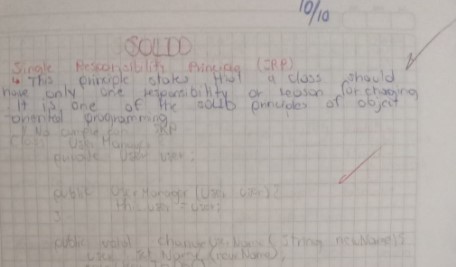 10/10
SOLID
Single Responsibility Principle (SRP)
This principle states that a class should
have only one responsibility or reason for changing
It is one of the SOLID principles of object
oriental programming
No cumple con SRP
class User Manager
private User user;
public UserManager (User user) {
this.user = user;
}
public void change User Name (String newName) {
user.set Name (newName);